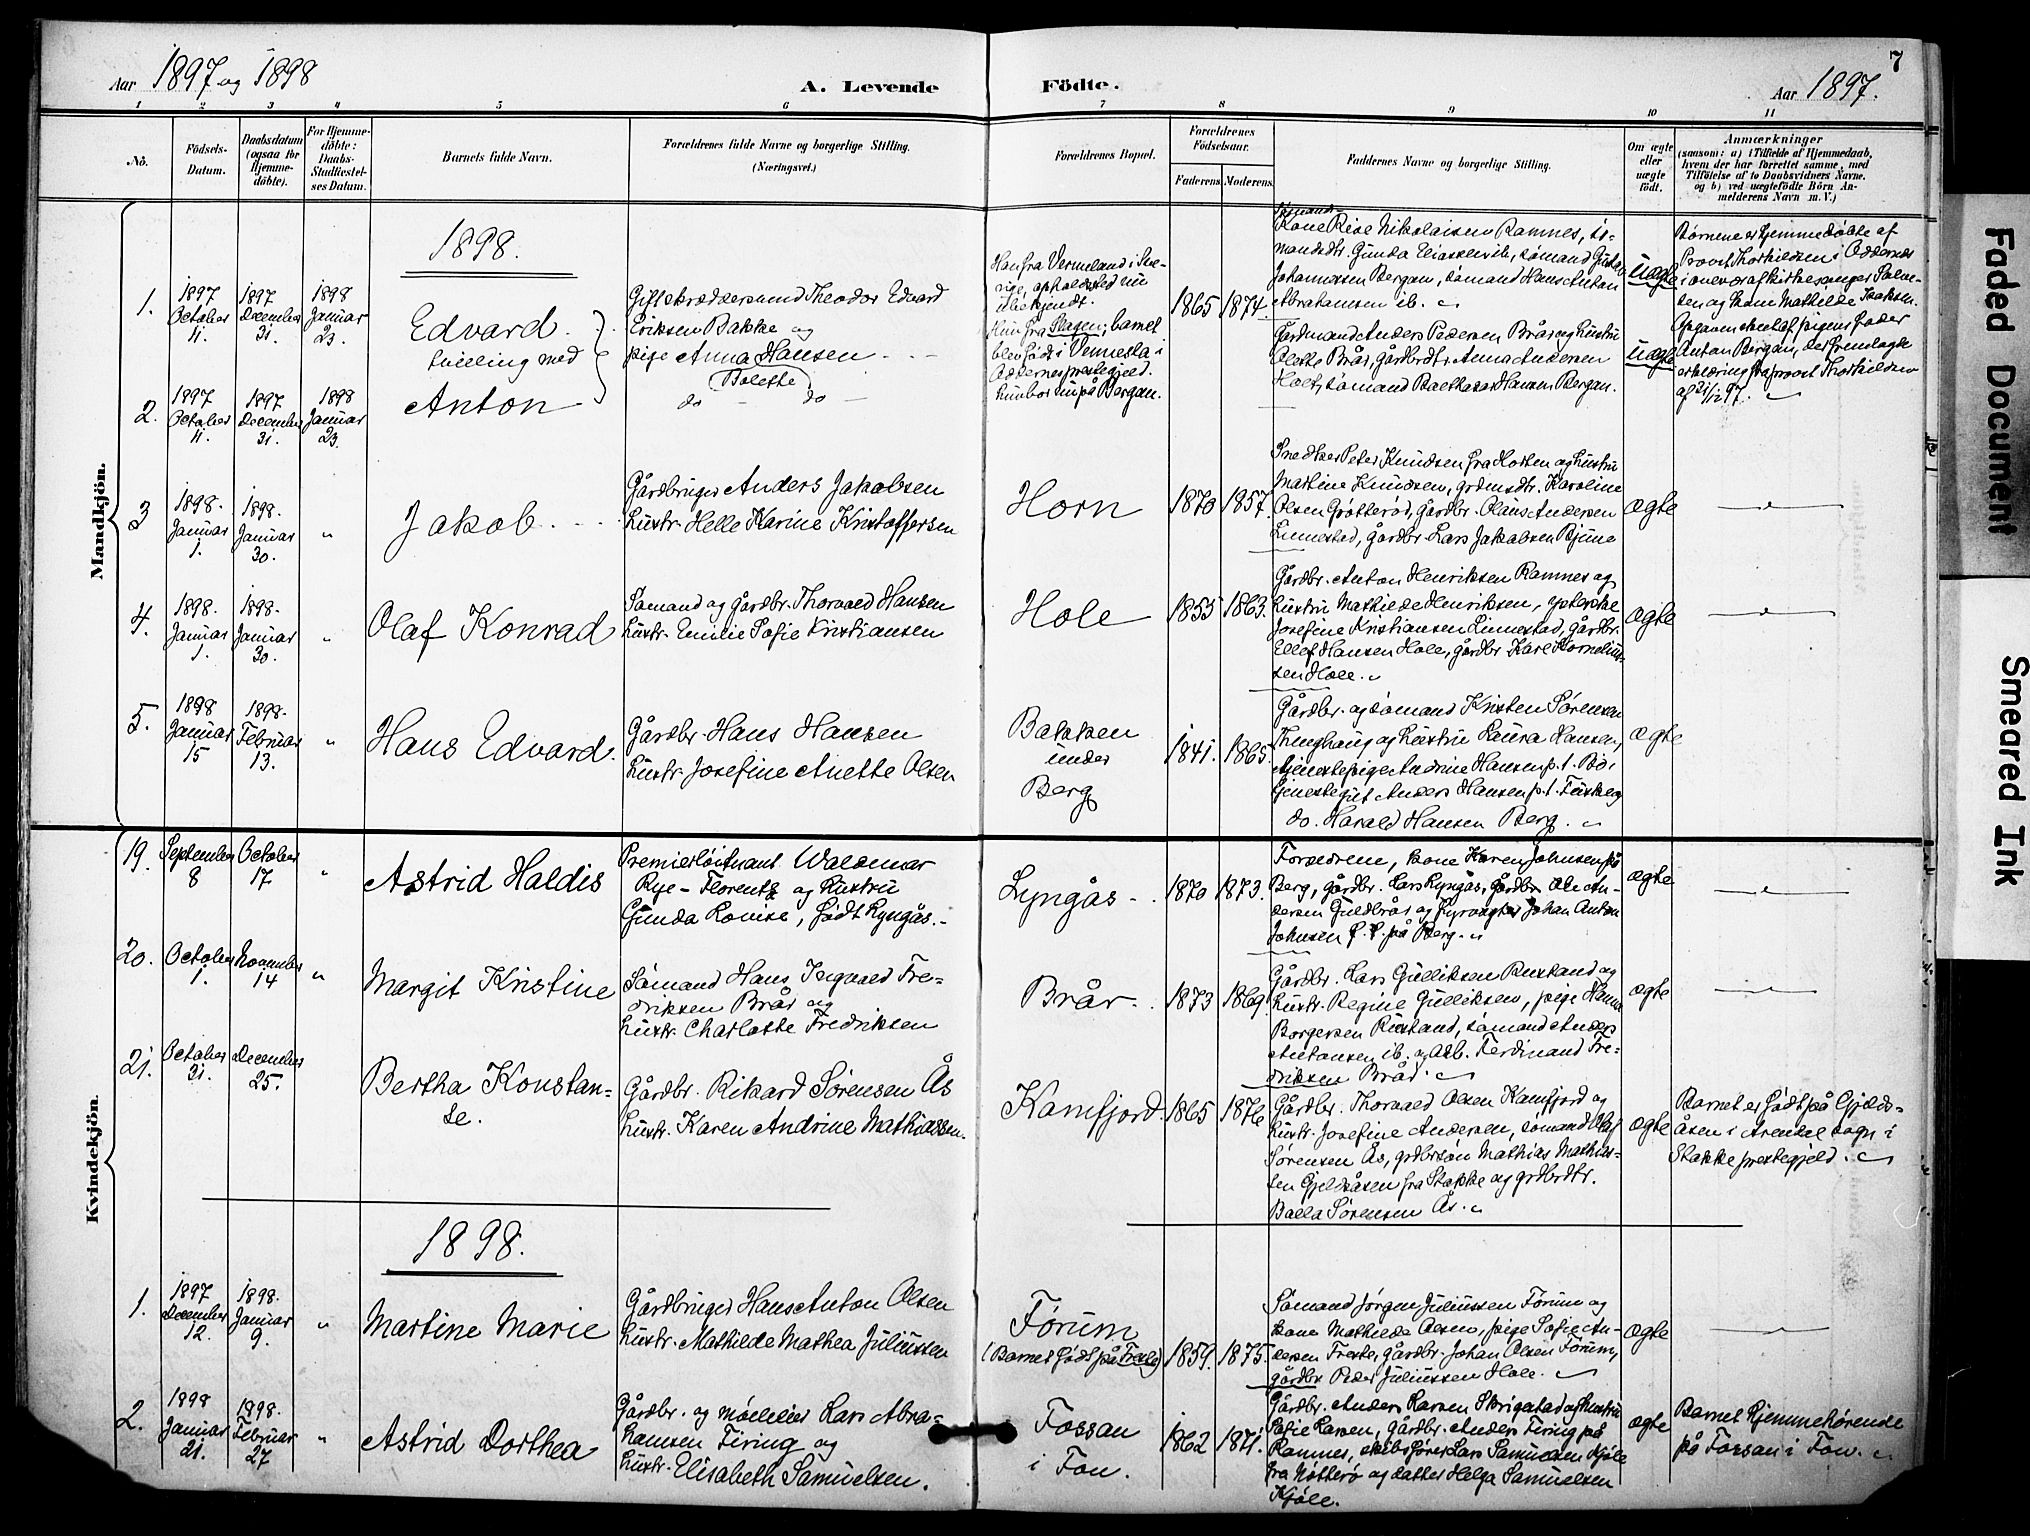 Aar 1897 og 1898
A. Levende
Födte.
7
Aar 1897.
1 2 3 4 5 6 7 8 9 10 11
No.
Födsels-
Datum.
Daabsdatum
(ogsaa for
Hjemme-
döbte).
For Hjemme-
döbte:
Daabs-
Stadfæstel-
ses Datum.
Barnets fulde Navn.
Forældrenes fulde Navne og borgerlige Stilling.
(Næringsvei.)
Forældrenes Bopæl.
Forældrenes
Födselsaar.
Faderens. Moderens.
Faddernes Navne og borgerlige Stilling.
Om ægte
eller
uægte
födt.
Anmærkninger
(saasom: a) i Tilfælde af Hjemmedaab,
hvem der har forrettet samme, med
Tilföielse af to Daabsvidners Navne.
og b) ved uægtefödte Börn An-
melderens Navn m. V.)
Mandkjön.
1898.
1.
1897
October
11.
1897
December
31.
1898
Januar
23.
Edvard
tvilling med
Gift skræddersvend Theodor Edvard
Eriksen Bakke og
pige Anna Hansen
Bolette
Han fra Vermeland i Sve-
rige, opholdsted nu
ubekjendt.
Hun fra Slagen; barnet
blev født i Vennesla i
Oddernes prestegjeld.
hun bor nu på Bergan.
1865 1874.
Sømands-
Kone Rise Nikolaisen Ramnes, sø-
mandsdt. Gunda Eliassen ib., sømand Gustav
Johannesen Bergan, sømand Hans Anton
Abrahamsen ib.
uægte
Børnene er hjemmedøbte af
Provst Thorkildsen i Oddernes
i overvær af kirkesanger Salve-
sen og Mom Mathilde Isaksen.
Opgaven meddelt af pigens fader
Anton Bergan, der fremlagde
erklæring fra provst Thorkildsen
af 31/12 97.
2.
1897
October
11.
1897
December
31.
1898
Januar
23.
Anton
do — do —
Gårdmand Anders Pedersen Brår og hustru
Olette Brår, gårdbrdt. Anna Andersen
Holt, sømand Balthazar Hansen Bergan.
uægte
3
1898.
Januar
1.
1898.
Januar
30.
"
Jakob
Gårdbruger Anders Jakobsen
hustr. Helle Karine Kristoffersen
Horn
1870 1857.
Snedker Peter Knudsen fra Horten og hustru
Martine Knudsen, grdmsdt. Karoline
Olsen Grøtterød, gårdbr. Olaus Andersen
Linnestad, gårdbr. Lars Jakobsen Bjune
ægte
4.
1898.
Januar
1.
1898.
Januar
30.
"
Olaf Konrad
Sømand og gårdbr. Thorvald Hansen
hustr. Emilie Sofie Kristiansen
Hole
1855 1863.
Gårdbr. Anton Henriksen Ramnes og
hustru Mathilde Henriksen, syerske
Josefine Kristiansen Linnestad, gårdbr.
Ellef Hansen Hole, gårdbr Karl Kornelius-
sen Hole.
ægte
5.
1898
Januar
15
1898.
Februar
13.
"
Hans Edvard.
Gårdbr. Hans Hansen
hustr. Josefine Anette Olsen
Bakken
under
Berg
1841. 1865.
Gårdbr. og sømand Kristen Sørensen
Thinghaug og hustru Laura Hansen,
tjenestepige Andrine Hansen p.t. Bø,
tjenestegut Anders Hansen p.t.
do. Harald Hansen Berg.
ægte
Kvindekjön.
19.
September
8
October
17
"
Astrid Haldis
Premierløitnant Waldemar
Rye-Florentz og hustru
Gunda Lovise, født Lyngås.
Lyngås
1870 1873.
Forældrene, kone Karen Johnsen på
Berg, gårdbr. Lars Lyngås, gårdbr. Ole An-
dersen Guldbrår og fyrvogter Johan Anton
Johnsen p. t. på Berg.
ægte
20.
October
1.
November
14
"
Margit Kristine
Sømand Hans Ingvald Fre-
driksen Brår og
hustr. Charlotte Fredriksen
Brår
1873 1869.
Gårdbr. Lars Gulliksen Rustand og
hustr. Regine Gulliksen, pige Hanna
Borgersen Rustand, sømand Anders
Antonsen ib. og arb. Ferdinand Fre-
driksen Brår.
ægte
21.
October
31.
December
25.
Bertha Konstan-
se.
Gårdbr. Rikard Sørensen Ås
hustr. Karen Andrine Mathiassen.
Kamfjord
1865 1876
Gårdbr. Thorvald Olsen Kamfjord og
hustr. Josefine Andersen, sømand Olaf
Sørensen Ås, grdbrsøn Mathias Mathias-
sen Gjeldsåsen fra Stokke og grdbrdtr.
Balla Sørensen Ås.
ægte
Barnet er født på Gjelds-
åsen i Arendal sogn i
Stokke prestegjeld.
1898.
1.
1897
December
12.
1898.
Januar
9.
"
Martine Marie
Gårdbruger Hans Anton Olsen
hustr. Mathilde Mathea Juliussen
Førum
(Barnet født på Freste)
1859. 1875.
Sømand Jørgen Juliussen Førum og
kone Mathilde Olsen, pige Sofie An-
dersen Freste, gårdbr. Johan Olsen Førum,
gårdbr Peder Juliussen Hole.
ægte
2.
1898
Januar
21.
1898.
Februar
27
"
Astrid Dorthea
Gårdbr. og møller Lars Abra-
hamsen Firing og
hustr. Elisabeth Samuelsen.
Fossan
i Fon.
1862 1871.
Gårdbr. Anders Larsen Skrigestad og hustru
Sofie Larsen, gårdbr. Anders Firing på
Ramnes, skibsfører Lars Samuelsen Kjøle
fra Nøtterø og datter Helga Samuelsen
Kjøle.
ægte
Barnet hjemmehørende
på Fossan i Fon.
Faded Document
Smeared Ink